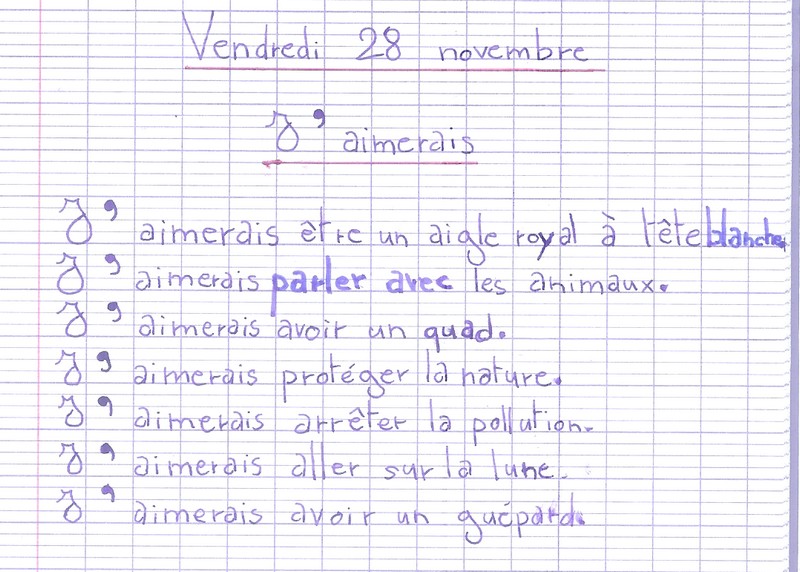 Vendredi 28 novembre
J' aimerais
J' aimerais être un aigle royal à tête blanche.
J' aimerais parler avec les animaux.
J' aimerais avoir un quad.
J' aimerais protéger la nature.
J' aimerais arrêter la pollution.
J' aimerais aller sur la lune.
J' aimerais avoir un guépard.